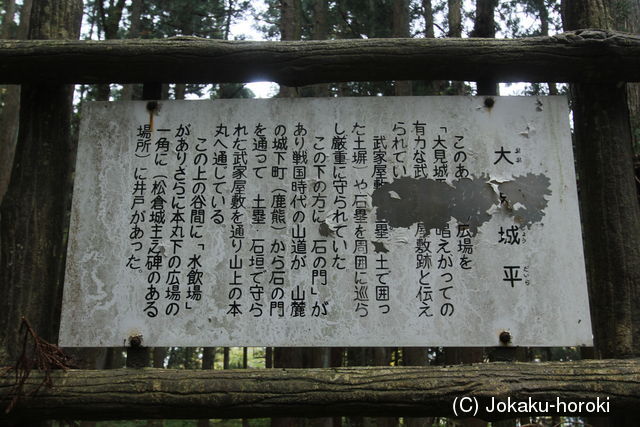 大 城平
おお じょう だいら
このあ 広場を
「大見城 唱えかつての
有力な武 屋敷跡と伝え
られてい
武家屋敷 土塁 土で囲っ
た土塀）や石塁を周囲に巡ら
し厳重に守られていた
この下の方に「石の門」が
あり戦国時代の山道が 山麓
の城下町（鹿熊）から石の門
を通って 土塁・石垣で守ら
れた武家屋敷を通り山上の本
丸へ通じている。
この上の谷間に「水飲場」
がありさらに本丸下の広場の
一角に（松倉城主之碑のある
場所）に井戸があった。
(C) Jokaku-horoki